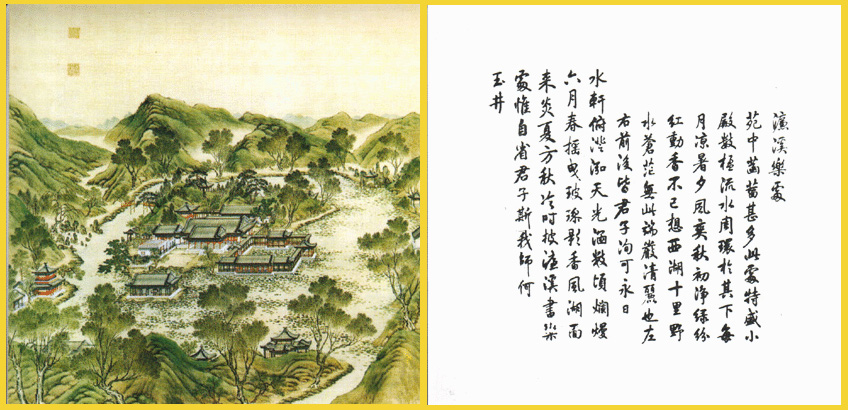 濂溪樂處
苑中菡萏甚多此處特盛小
殿數楹流水周環於其下每
月涼暑夕風爽秋初淨綠紛
紅動香不已想西湖十里野
水蒼茫無此端嚴清麗也左
右前後皆君子洵可永日
水軒俯澹泓天光涵數頃爛熳
六月春搖曳玻璃影香風湖面
來炎夏方秋冷時披濂溪書樂
處惟自省君子斯我師何
玉井